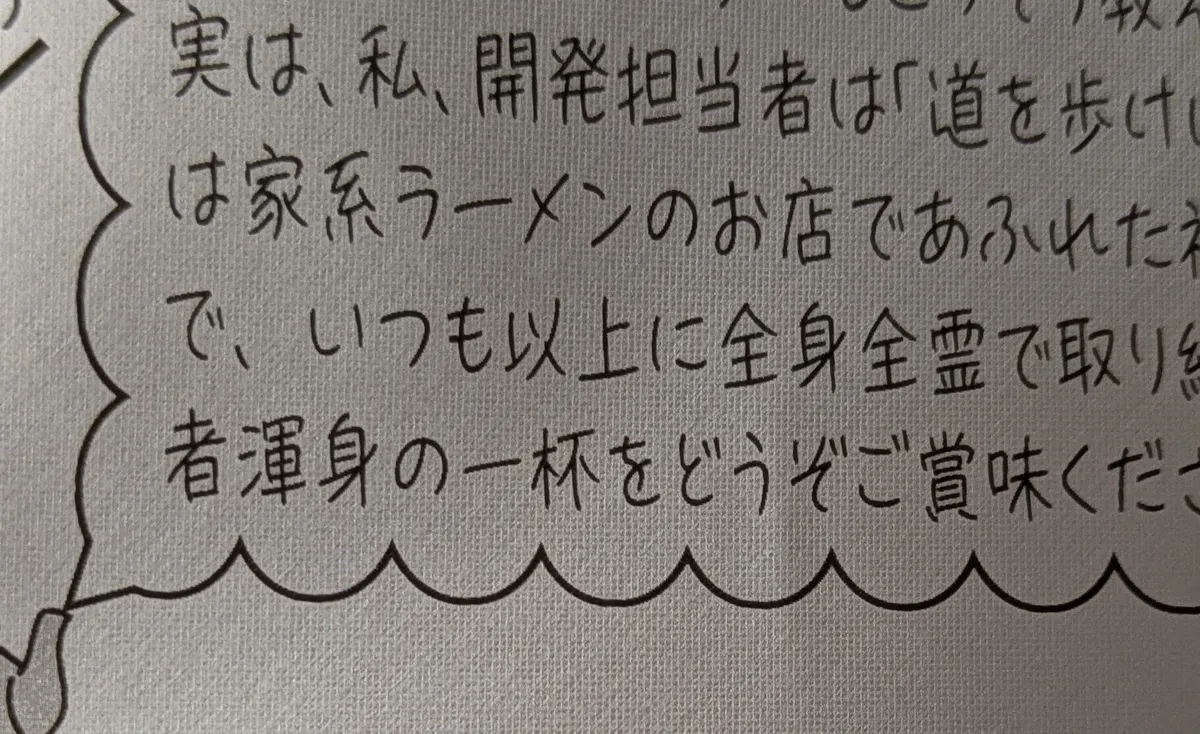 実は、私、開発担当者は「道を歩け
は家系ラーメンのお店であふれた
で、いつも以上に全身全霊で取り
者渾身の一杯をどうぞご賞味くださ